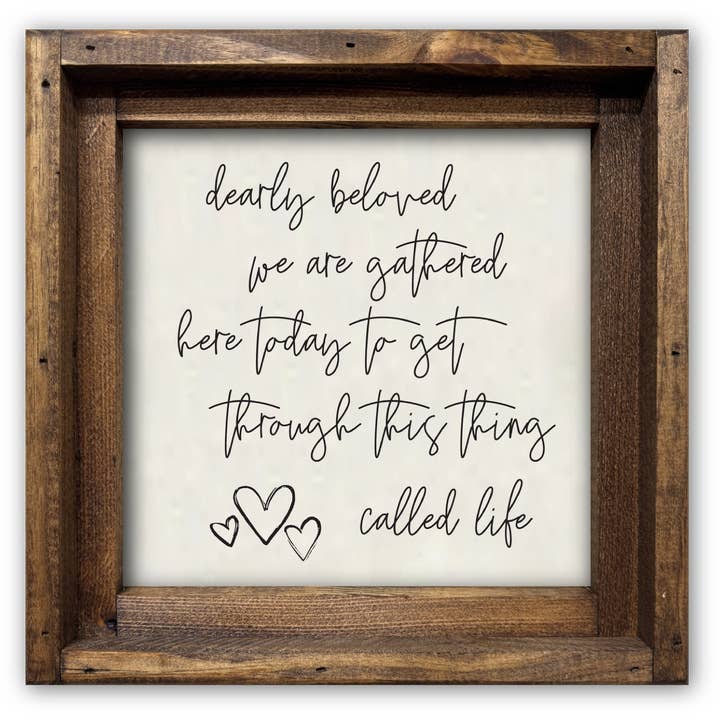 dearly beloved
we are gathered
here today to get
through this thing
called life